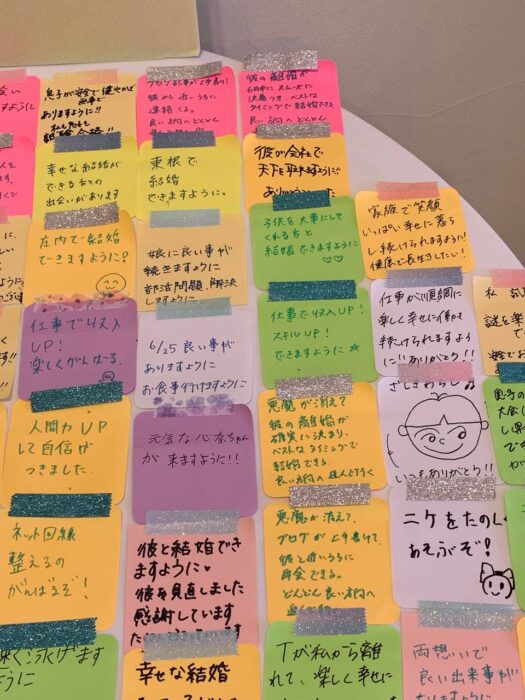 ますように
息子が安全で健やかで
ありますように!!
ブログ
彼から近いうちに
連絡くる。
良い方向へどんどん
彼の離婚が
決着つき ベストな
タイミングで結婚できる
良い方向へどんどん
幸せな結婚が
できる方との
出会いがあります
東根で
結婚
できますように。
彼が会社で
天下を取れますように!!
庄内で結婚
できますように?
娘に良い事が
続きますように
部活問題、解決
しますように
子供を大事にして
くれる方と
結婚できますように
♡♡
家族で笑顔
いっぱい幸せに暮ら
し続けられますように!
健康で長生きしたい!
仕事で収入
UP!
楽しくがんばる。
6/25 良い事が
ありますように
お食事行けますように
仕事で収入UP!
スキルUP!
できますように☆
仕事が順調に
楽しく幸せに働け
続けられますように
!! ありがとう!!
人間力UP
して自信が
つきました。
元気な心奈ちゃん
が 来ますように!!
悪魔が消えて
彼の離婚が
確実に決まり、
ベストなタイミングで
結婚できる。
良い方向へ
ざしきわらし
いつもありがとう!!
息子の
大会
ネット回線
整えるの
がんばるぞ!
彼と結婚でき
ますように♥
彼を見直しました
感謝しています
悪魔が消えて、
ブログが上手書けて、
彼と近いうちに
再会できる。
どんどん良い方向へ
ニケをたのしく
あそぶぞ!
泳げます
ように
幸せな結婚
Tが私から離
れて、楽しく幸せに
両想いで
良い出来事が